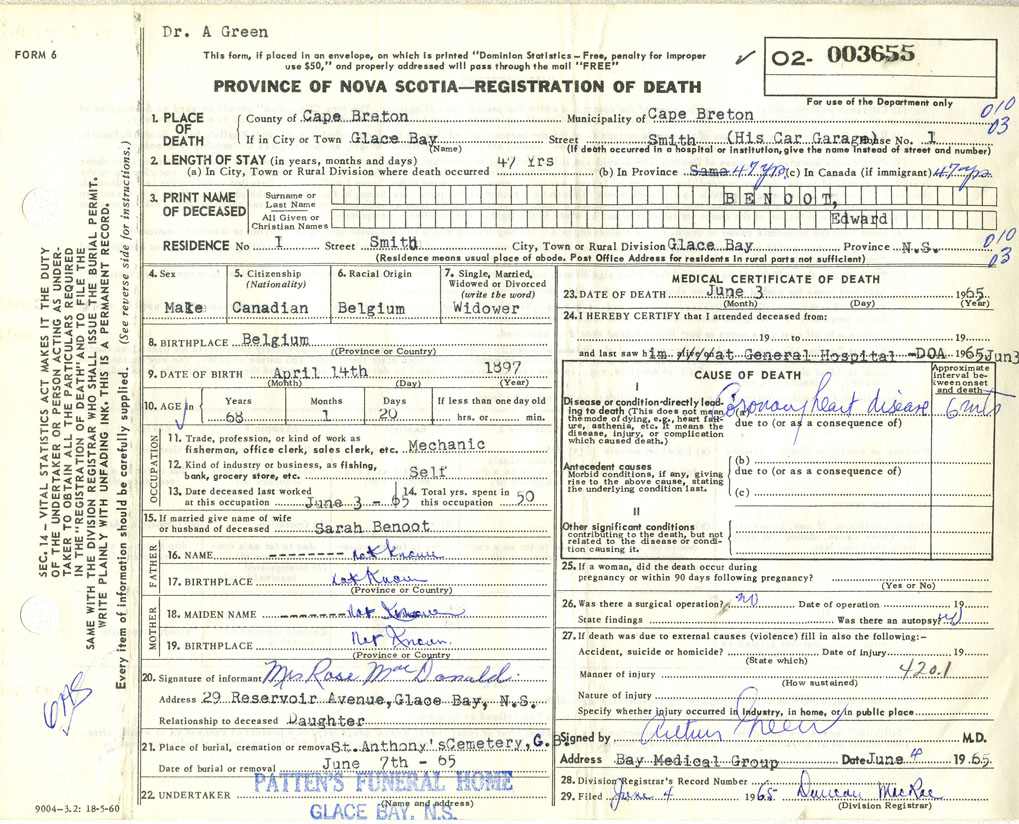 Dr. A Green
FORM 6
This form, if placed in an envelope, on which is printed "Dominion Statistics—Free, penalty for improper
use $50," and properly addressed will pass through the mail "FREE"
✓ 02- 003655
For use of the Department only
PROVINCE OF NOVA SCOTIA—REGISTRATION OF DEATH
SEC. 14 — VITAL STATISTICS ACT MAKES IT THE DUTY
OF THE UNDERTAKER OR PERSON ACTING AS UNDER-
TAKER TO OBTAIN ALL THE PARTICULARS REQUIRED
IN THE "REGISTRATION OF DEATH" AND TO FILE THE
SAME WITH THE DIVISION REGISTRAR WHO SHALL ISSUE THE BURIAL PERMIT.
WRITE PLAINLY WITH UNFADING INK. THIS IS A PERMANENT RECORD.
Every item of information should be carefully supplied. (See reverse side for instructions.)
1. PLACE OF DEATH
County of Cape Breton Municipality of Cape Breton 010
03
If in City or Town Glace Bay Street Smith (His Car Garage) House No. 1
(Name) (If death occurred in a hospital or institution, give the name instead of street and number)
2. LENGTH OF STAY (in years, months and days) 47 Yrs
(a) In City, Town or Rural Division where death occurred (b) In Province Same 47 yrs (c) In Canada (if immigrant) 47 yrs
3. PRINT NAME OF DECEASED
Surname or Last Name BENOOT,
All Given or Christian Names Edward
RESIDENCE No 1 Street Smith City, Town or Rural Division Glace Bay Province N.S. 010
03
(Residence means usual place of abode. Post Office Address for residents in rural parts not sufficient)
4. Sex 5. Citizenship (Nationality) 6. Racial Origin 7. Single, Married, Widowed or Divorced (write the word)
Male Canadian Belgium Widower
8. BIRTHPLACE Belgium
(Province or Country)
9. DATE OF BIRTH April 14th 1897
(Month) (Day) (Year)
10. AGE in Years Months Days If less than one day old
68 1 20 hrs. or min.
OCCUPATION
11. Trade, profession, or kind of work as
fisherman, office clerk, sales clerk, etc. Mechanic
12. Kind of industry or business, as fishing,
bank, grocery store, etc. Self
13. Date deceased last worked
at this occupation June 3 - 65
14. Total yrs. spent in
this occupation 50
15. If married give name of wife
or husband of deceased Sarah Benoot
FATHER
16. NAME Not Known
17. BIRTHPLACE Not Known
(Province or Country)
MOTHER
18. MAIDEN NAME Not Known
19. BIRTHPLACE Not Known.
(Province or Country
20. Signature of informant Mrs Rose MacDonald.
Address 29 Reservoir Avenue, Glace Bay, N.S.
Relationship to deceased Daughter
21. Place of burial, cremation or removal St. Anthony's Cemetery, G. B.
Date of burial or removal June 7th - 65
22. UNDERTAKER PATTEN'S FUNERAL HOME
(Name and address)
GLACE BAY, N.S.
9004—3.2: 18-5-60
MEDICAL CERTIFICATE OF DEATH
23. DATE OF DEATH June 3 1965
(Month) (Day) (Year)
24. I HEREBY CERTIFY that I attended deceased from:
19 to 19
and last saw him at General Hospital -DOA 1965 Jun3
CAUSE OF DEATH
Approximate interval between onset and death
I
Disease or condition-directly lead-
ing to death (This does not mean
the mode of dying, e.g., heart fail-
ure, asthenia, etc. It means the
disease, injury, or complication
which caused death.)
Coronary heart disease 6 mts
due to (or as a consequence of)
Antecedent causes
Morbid condition, if any, giving
rise to the above cause, stating
the underlying condition last.
(b)
due to (or as a consequence of)
(c)
II
Other significant conditions
contributing to the death, but not
related to the disease or condi-
tion causing it.
25. If a woman, did the death occur during
pregnancy or within 90 days following pregnancy?
(Yes or No)
26. Was there a surgical operation? no Date of operation 19
State findings Was there an autopsy? no
27. If death was due to external causes (violence) fill in also the following:—
Accident, suicide or homicide? Date of injury 19
(State which)
Manner of injury 420.1
(How sustained)
Nature of injury
Specify whether injury occurred in industry, in home, or in public place
Signed by Arthur Green M.D.
Address Bay Medical Group Date June 4 1965
28. Division Registrar's Record Number
29. Filed June 4 1965 Duncan MacRae
(Division Registrar)